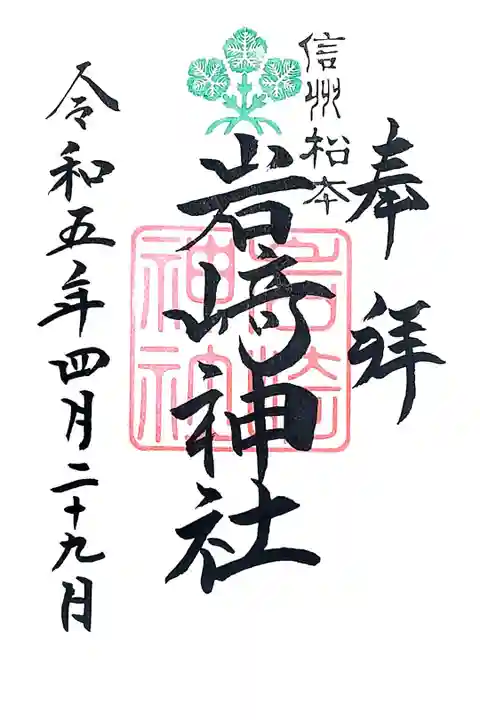 奉拝
信州松本
岩崎神社
岩崎神社
令和五年四月二十九日